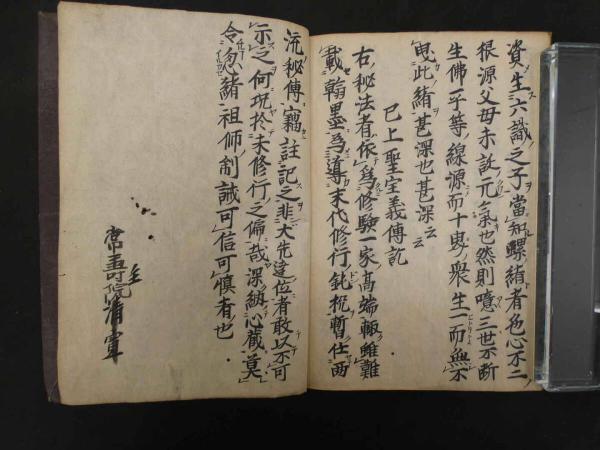 資生六識之子當知螺緒者色心不二
根源父母未設元氣也然則噫三世不断
生佛平等線源而十界衆生一而無不
曳此緒甚深也甚深云云
已上聖宝義傳記
右秘法者依為修験一家高端輙雖難
載翰墨為導末代修行鈍机暫任両
流秘傳竊註記之非大先達位者敢以不可
示之何况於未修行之偏哉深納心蔵莫
令忽緒祖師制誡可信可慎者也
常壽院
主
清寛